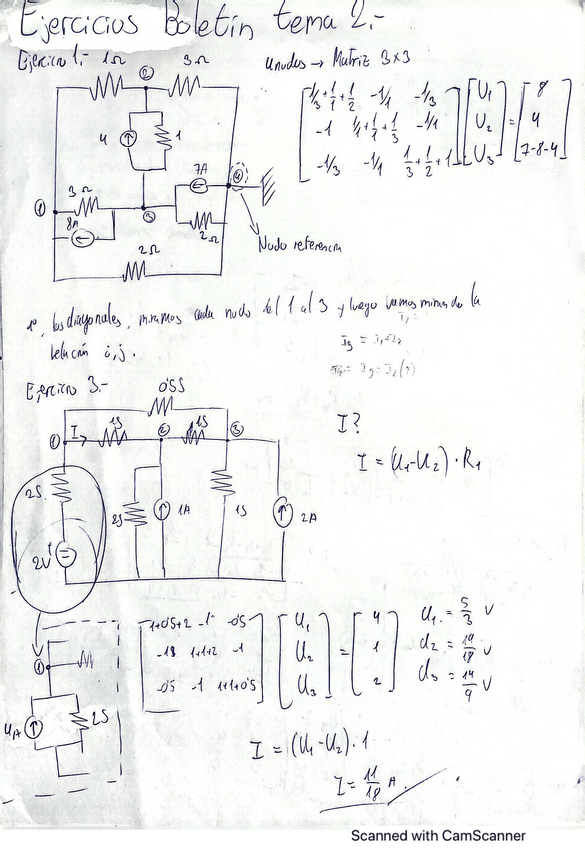 Ejercicios Boletín tema 2.-
Ejercicio 1.-
1Ω
3Ω
②
4
1
3Ω
7A
④
①
③
8A
2Ω
2Ω
Nudo referencia
4 nudos → Matriz 3x3
1/3+1/1+1/2 -1/1 -1/3
-1 1/1+1/1+1/3 -1/1
-1/3 -1/1 1/3+1/2+1
U1
U2
U3
=
8
4
7-8-4
1º, las diagonales, miramos cada nudo del 1 al 3 y luego vamos mirando la
relación i,j.
Ejercicio 3.-
0'5S
①
I
1S
②
1S
③
2S
2S
1A
1S
2A
2V
+
I?
I = (U1-U2)·R1
①
4A
2S
1+0'5+2 -1 -0'5
-1S 1+1+2 -1
-0'5 -1 1+1+0'5
U1
U2
U3
=
4
1
2
U1 = 5/3 V
U2 = 19/18 V
U3 = 14/9 V
I = (U1-U2)·1
I = 11/18 A.
Scanned with CamScanner